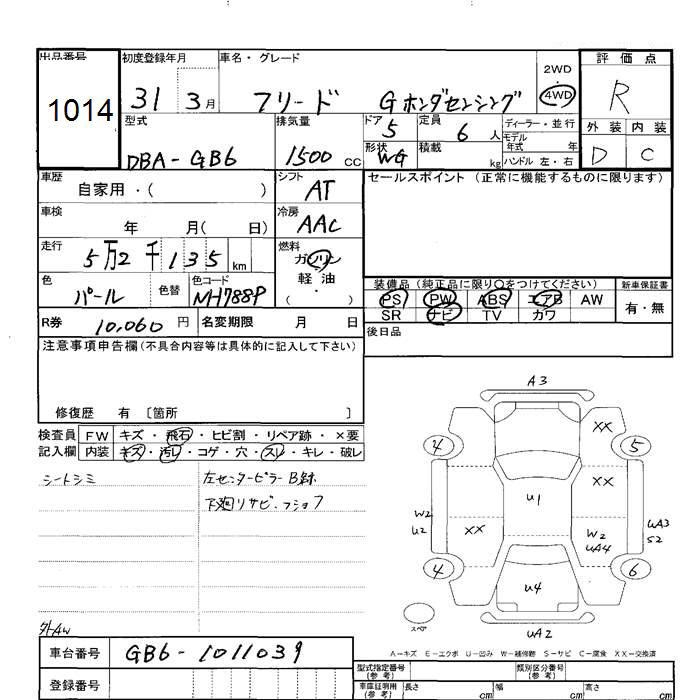 出品番号 初度登録年月 車名・グレード 2WD 評価点
1014 31 3月 フリード Gホンダセンシング 4WD R
型式 排気量 ドア 定員 ディーラー・並行 外装 内装
DBA-GB6 1500 cc 5 6 人 モデル 年式 年 D C
形状 WG 積載 kg ハンドル 左・右
車歴 自家用・( ) シフト AT セールスポイント (正常に機能するものに限ります)
車検 年 月( 日) 冷房 AAC
走行 5万2千135 km 燃料 ガソリン 軽油 ( ・ )
色 パール 色替 色コード NH788P 装備品 (純正品に限り○をつけてください) 新車保証書
PS PW ABS エアB AW 有・無
SR ナビ TV カワ
R券 10,060 円 名変期限 月 日 後日品
注意事項申告欄(不具合内容等は具体的に記入して下さい)
修復歴 有 〔箇所 〕
検査員 FW キズ・飛石・ヒビ割・リペア跡・×要
記入欄 内装 キズ・汚レ・コゲ・穴・スレ・キレ・破レ
シートシミ 左センターピラーB錄
下廻リサビ・
外AW
車台番号 GB6-1011039
登録番号
A3
4 XX XX 5
U1
W2 U2 XX W2 UA4 UA3 S2
4 U4 6
スペア UA2
A-キズ E-エクボ U-凹み W-補修跡 S-サビ C-腐食 XX-交換済
型式指定番号 (参考) 類別区分番号 (参考)
車庫証明用 (参考) 長さ cm 幅 cm 高さ cm